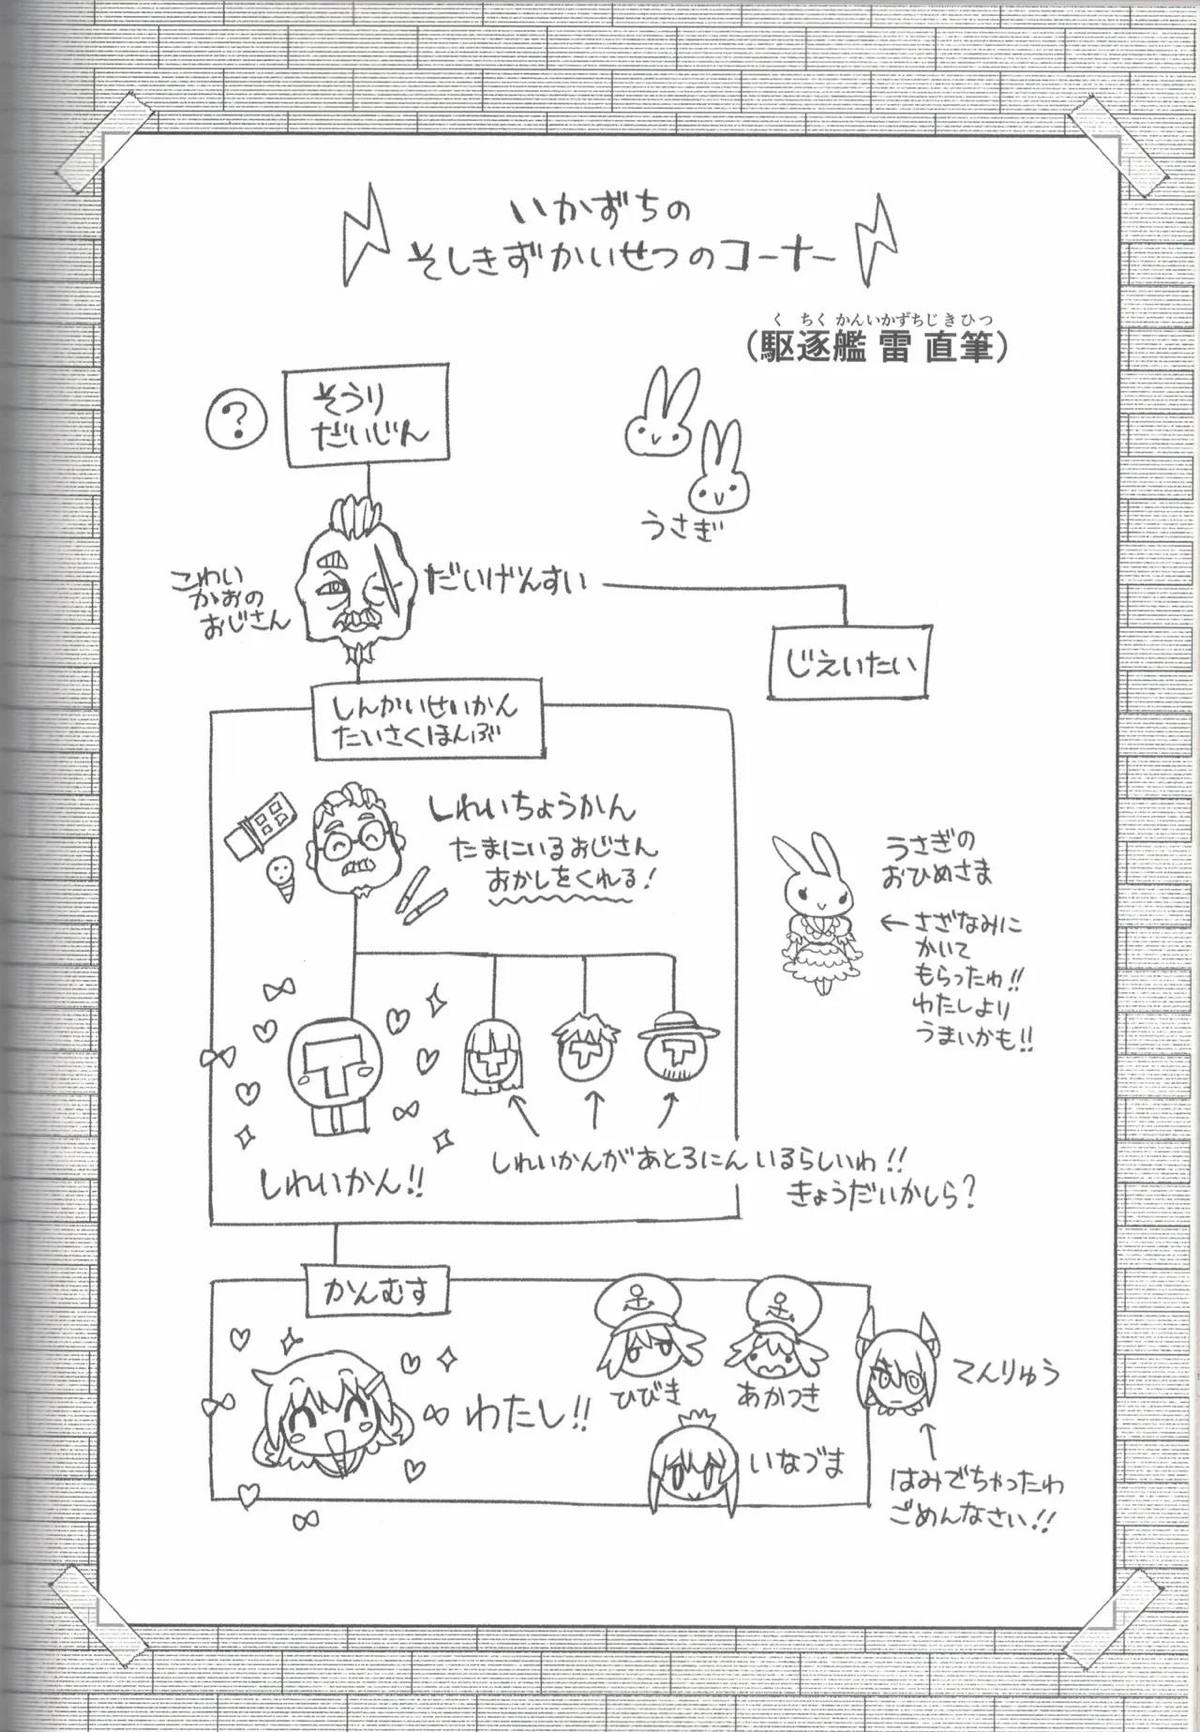 いかずちの
そしきずかいせつのコーナー
（駆逐艦 雷 直筆）
くちくかんいかずちじきひつ
?
そうり
だいじん
うさぎ
こわい
かおの
おじさん
だいげんすい
じえいたい
しんかいせいかん
たいさくほんぶ
しれいちょうかん
たまにいるおじさん
おかしをくれる!
うさぎの
おひめさま
←さざなみに
かいて
もらったわ!!
わたしより
うまいかも!!
T
T
T
T
しれいかん!!
しれいかんがあと3にんいるらしいわ!!
きょうだいかしら?
かんむす
わたし!!
ひびき
あかつき
いなづま
てんりゅう
はみでちゃったわ
ごめんなさい!!